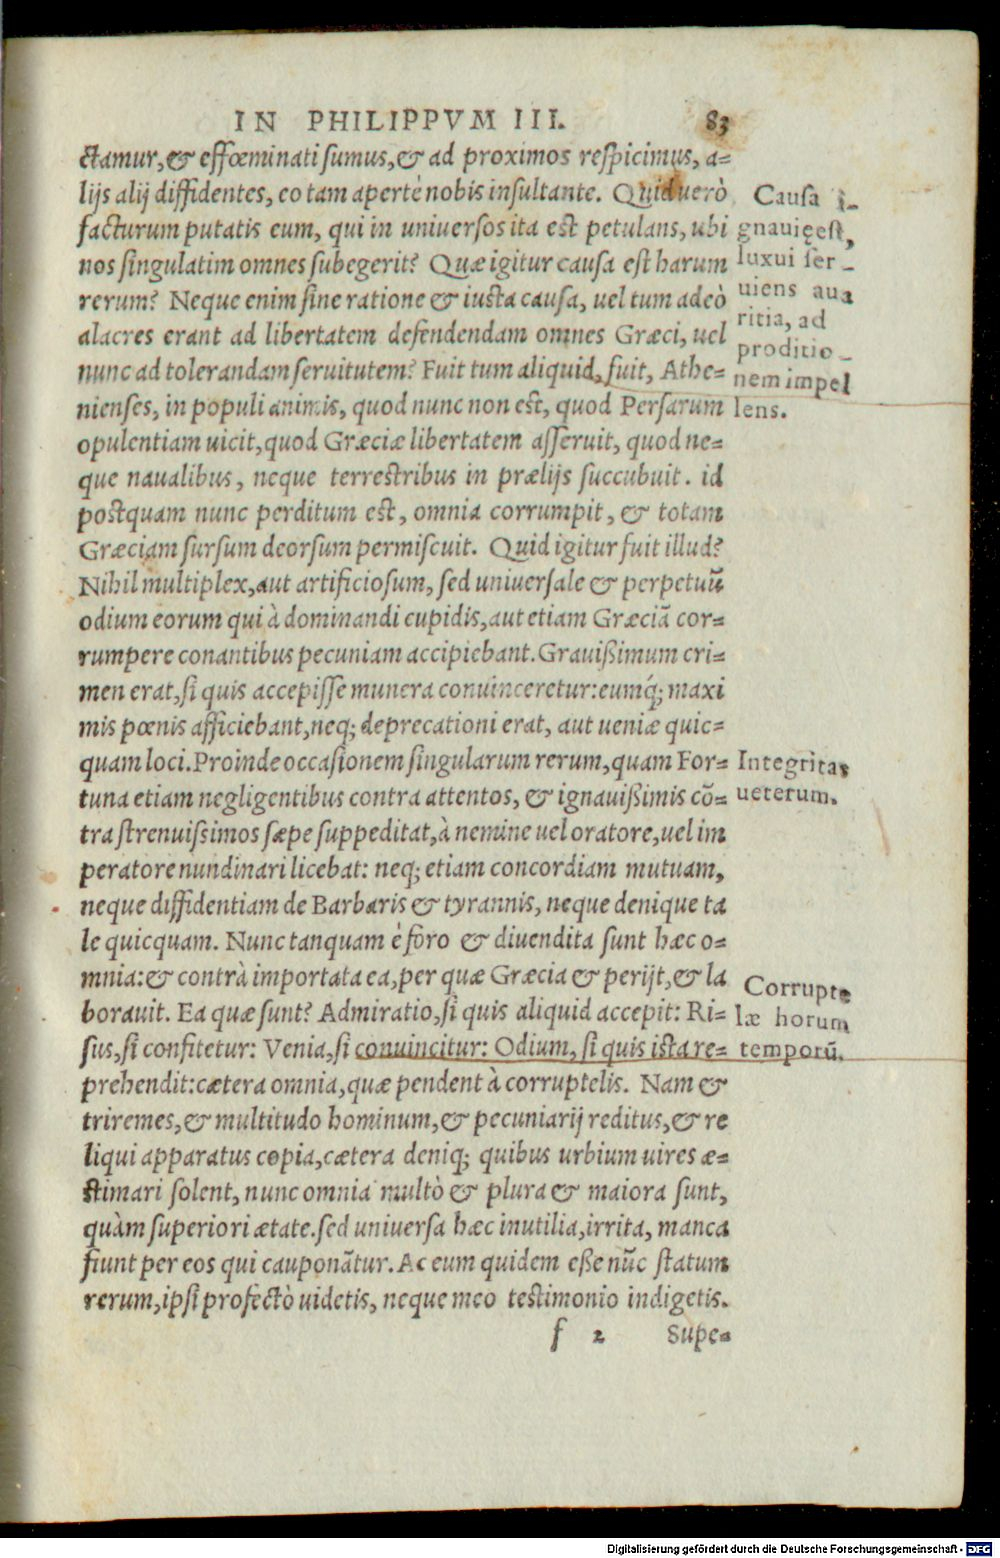 IN PHILIPPVM III. 83
ctamur, & effœminati sumus, & ad proximos respicimus, a-
lijs alij diffidentes, eo tam apertè nobis insultante. Quid uerò
facturum putatis eum, qui in universos ita est petulans, ubi
nos singulatim omnes subegerit? Quæ igitur causa est harum
rerum? Neque enim sine ratione & iusta causa, uel tum adeò
alacres erant ad libertatem defendendam omnes Græci, uel
nunc ad tolerandam seruitutem? Fuit tum aliquid, fuit, Athe-
nienses, in populi animis, quod nunc non est, quod Persarum
opulentiam uicit, quod Græciæ libertatem asseruit, quod ne-
que naualibus, neque terrestribus in prælijs succubuit. id
postquam nunc perditum est, omnia corrumpit, & totam
Græciam sursum deorsum permiscuit. Quid igitur fuit illud?
Nihil multiplex, aut artificiosum, sed uniuersale & perpetuũ
odium eorum qui à dominandi cupidis, aut etiam Græciã cor-
rumpere conantibus pecuniam accipiebant. Grauißimum cri-
men erat, si quis accepisse munera conuinceretur: eumq́; maxi
mis pœnis afficiebant, neq; deprecationi erat, aut ueniæ quic-
quam loci. Proinde occasionem singularum rerum, quam For-
tuna etiam negligentibus contra attentos, & ignauißimis cõ-
tra strenuissimos sæpe suppeditat, à nemine uel oratore, uel im
peratore nundinari licebat: neq; etiam concordiam mutuam,
neque diffidentiam de Barbaris & tyrannis, neque denique ta
le quicquam. Nunc tanquam è foro & diuendita sunt hæc o-
mnia: & contrà importata ea, per quæ Græcia & perijt, & la
borauit. Ea quæ sunt? Admiratio, si quis aliquid accepit: Ri-
sus, si confitetur: Venia, si conuincitur: Odium, si quis ista re-
prehendit: cætera omnia, quæ pendent à corruptelis. Nam &
triremes, & multitudo hominum, & pecuniarij reditus, & re
liqui apparatus copia, cætera deniq; quibus urbium uires æ-
stimari solent, nunc omnia multò & plura & maiora sunt,
quàm superiori ætate. sed uniuersa hæc inutilia, irrita, manca
fiunt per eos qui cauponãtur. Ac eum quidem eße nũc statum
rerum, ipsi profectò uidetis, neque meo testimonio indigetis.
f 2 Supe-
Causa i-
gnauię est,
luxui ser-
uiens aua
ritia, ad
proditio-
nem impel
lens.
Integritas
ueterum.
Corrupte
læ horum
temporũ.
Digitalisierung gefördert durch die Deutsche Forschungsgemeinschaft - DFG